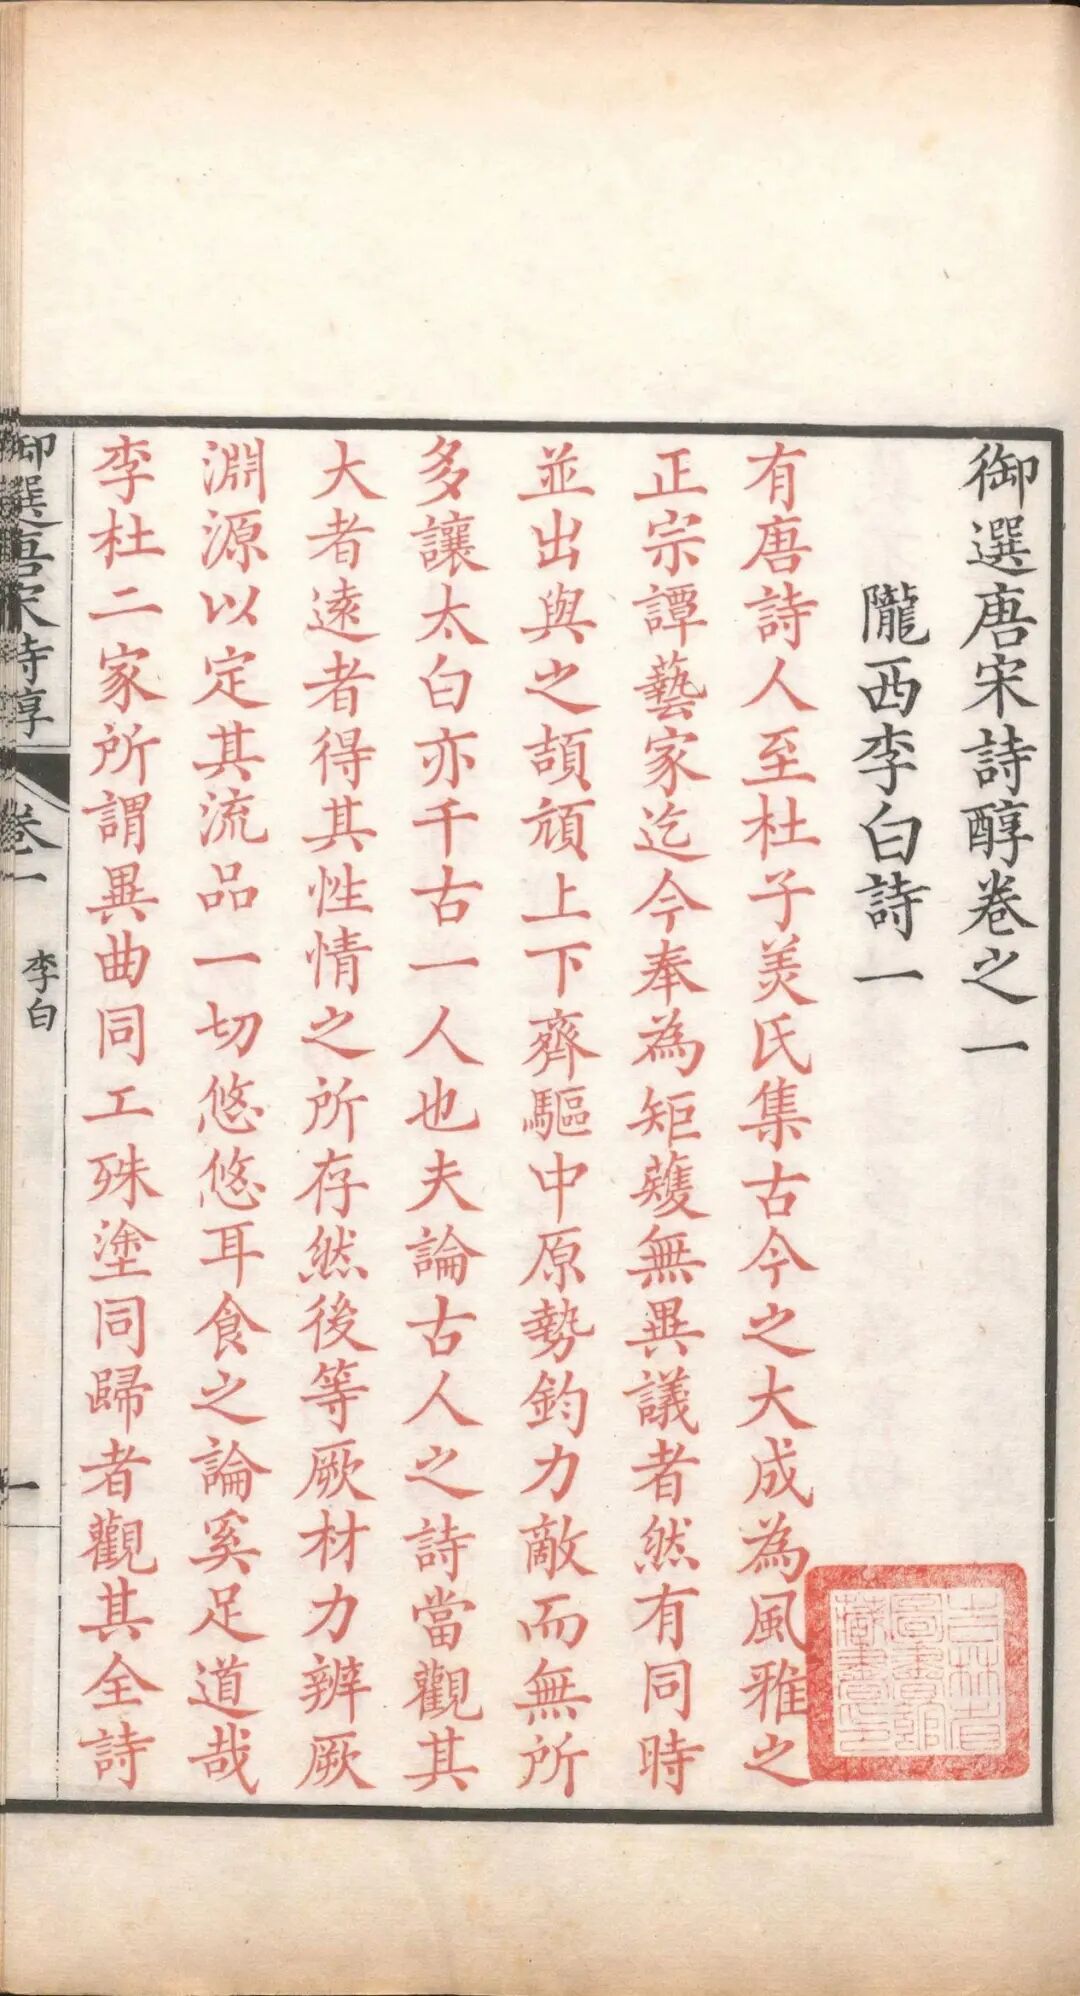 御選唐宋詩醇卷之一
隴西李白詩一
有唐詩人至杜子美氏集古今之大成為風雅之
正宗譚藝家迄今奉為矩矱無異議者然有同時
並出與之頡頏上下齊驅中原勢鈞力敵而無所
多讓太白亦千古一人也夫論古人之詩當觀其
大者遠者得其性情之所存然後等厥材力辨厥
淵源以定其流品一切悠悠耳食之論奚足道哉
李杜二家所謂異曲同工殊塗同歸者觀其全詩
御選唐宋詩醇
卷一
李白
一
吉林省
圖書館
藏書印